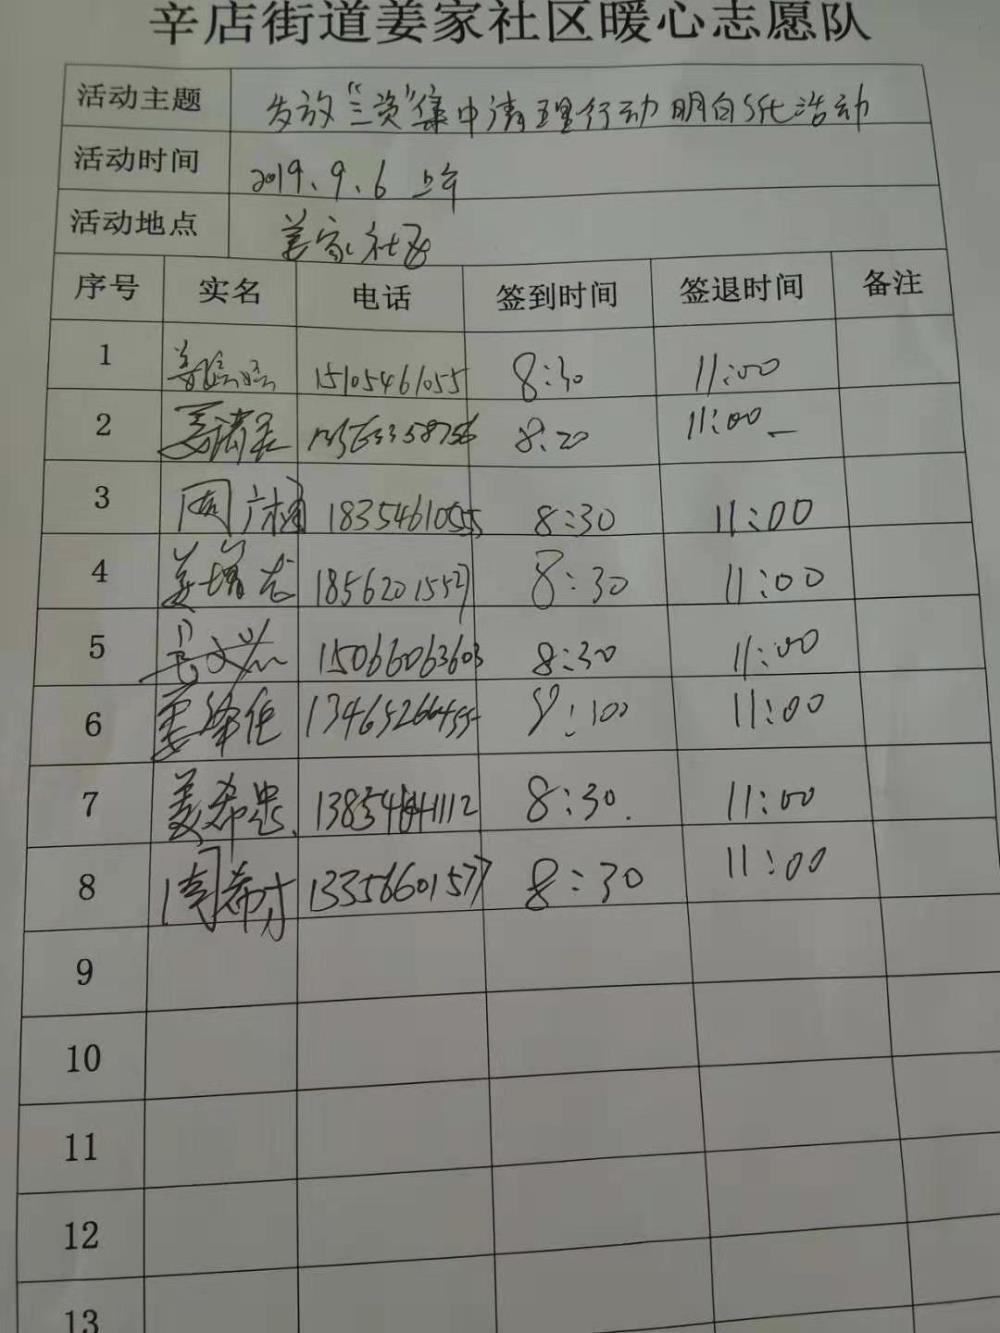 辛店街道姜家社区暖心志愿队
活动主题 发放"三资"集中清理行动明白纸活动
活动时间 2019、9、6 上午
活动地点 姜家社区
序号 实名 电话 签到时间 签退时间 备注
1 15105461055 8:30 11:00
2 姜 8:20 11:00
3 周广 18354610555 8:30 11:00
4 姜增志 18562015527 8:30 11:00
5 15066063603 8:30 11:00
6 姜 13465266455 11:00
7 姜希忠 1112 8:30 11:00
8 周希才 13356601577 8:30 11:00
9
10
11
12
13